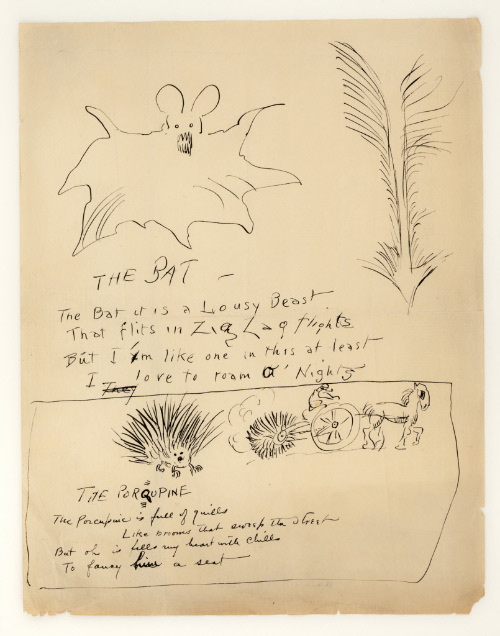 THE BAT –
The Bat it is a Lousy Beast
That flits in Zig Zag flights
But I'm like one in this at least
I love to roam O' Nights
THE PORQUPINE
The Porcupine is full of quills
Like brooms that sweep the street
But oh is fills my heart with chills
To fancy a seat